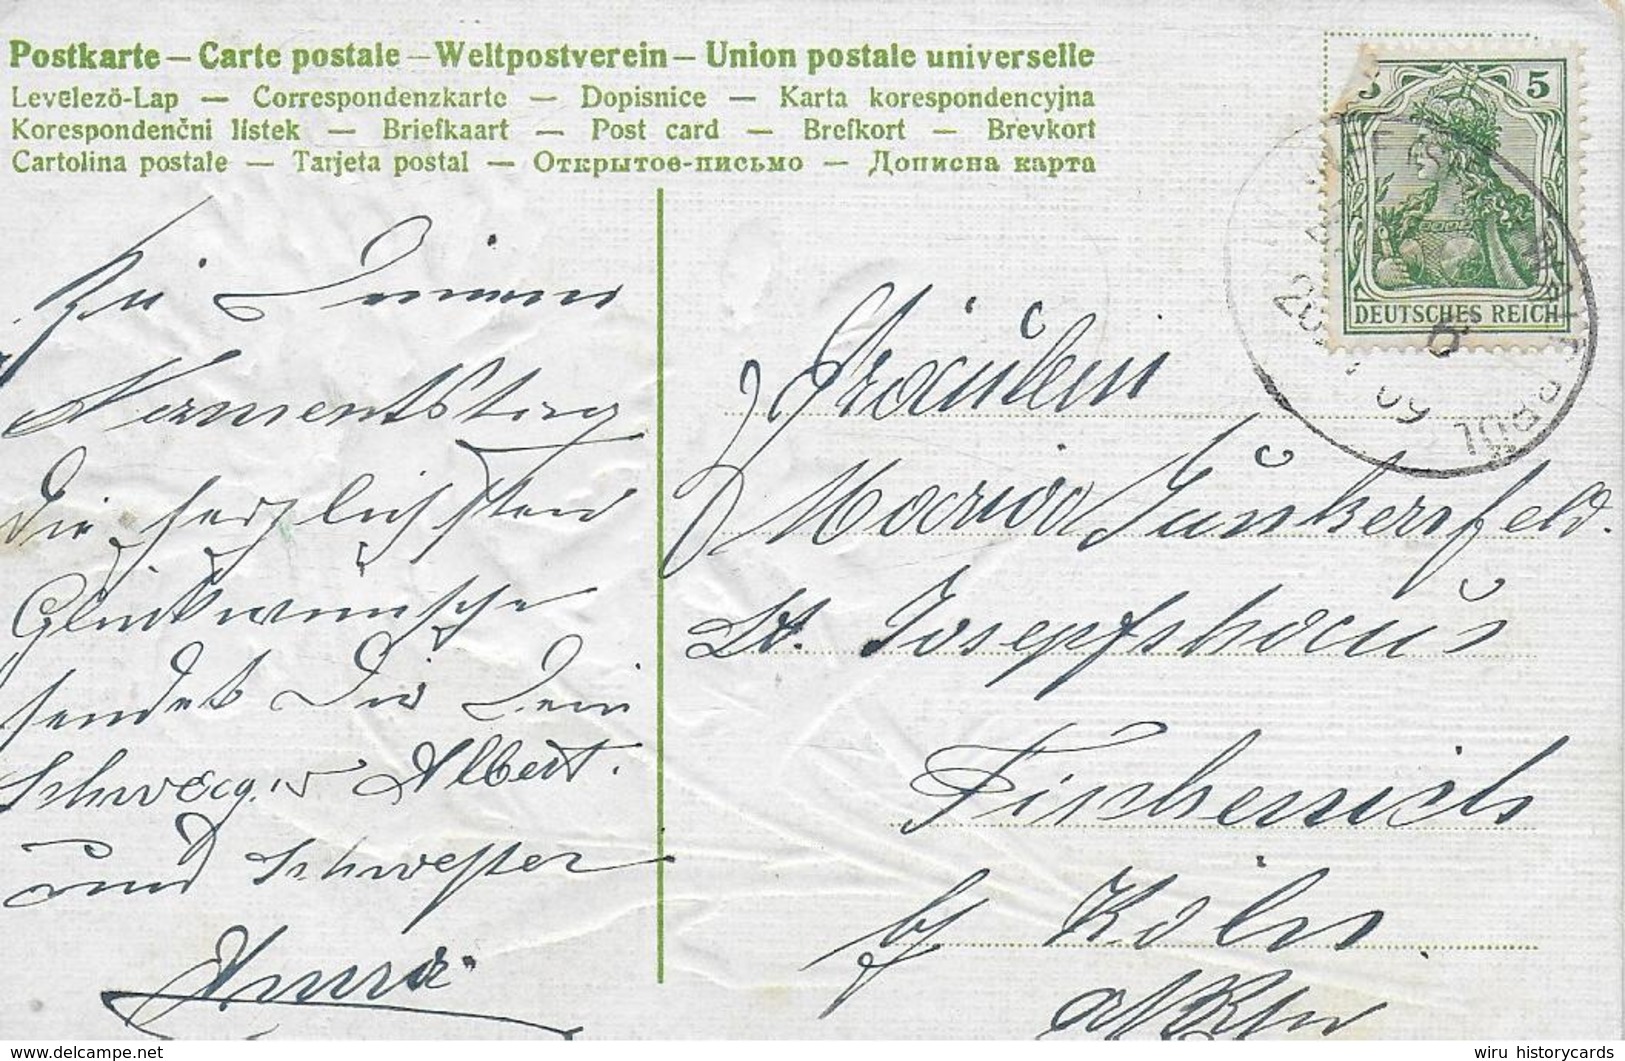 Postkarte – Carte postale – Weltpostverein – Union postale universelle
Levelező-Lap — Correspondenzkarte — Dopisnice — Karta korespondencyjna
Korespondenčni listek — Briefkaart — Post card — Brefkort — Brevkort
Cartolina postale — Tarjeta postal — Открытое-письмо — Дописна карта
5
DEUTSCHES REICH
Zu Deinem
Namenstag
die herzlichsten
Glückwünsche
sendet Dir Dein
Schwager Albert.
und Schwester
Anna.
Fräulein
Maria Junkersfeld.
St. Josephshaus
Fischenich
b/ Köln
a/Rhein
wiru historycards
© www.delcampe.net